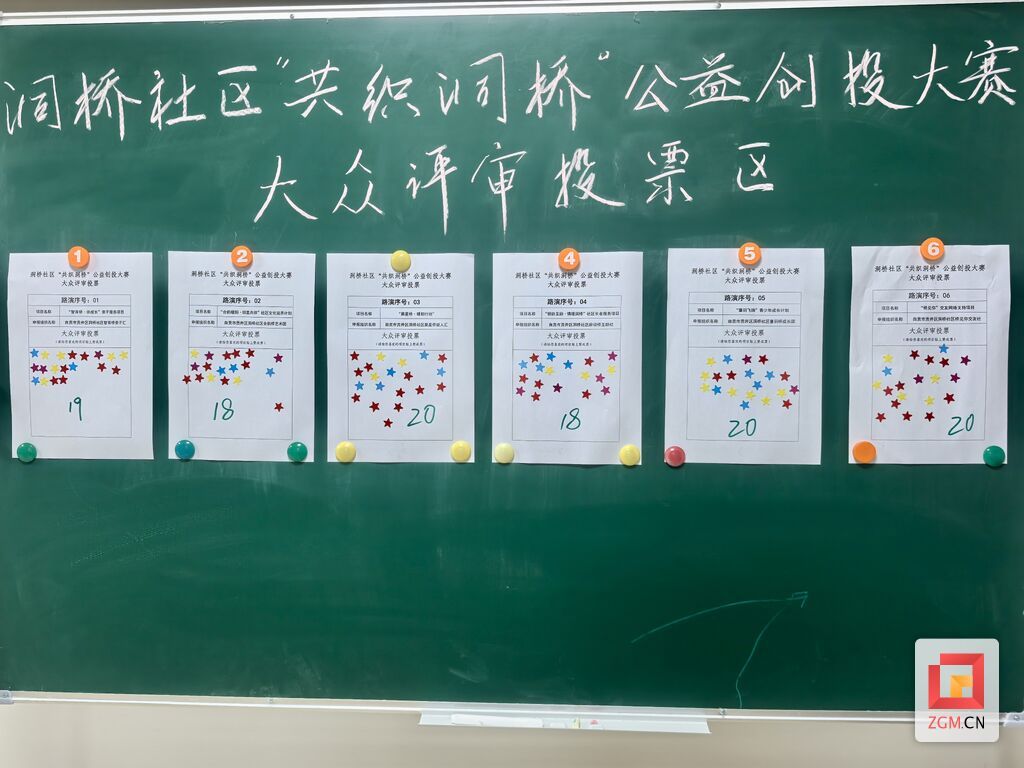 洞桥社区“共织洞桥”公益创投大赛
大众评审投票区
1
洞桥社区“共织洞桥”公益创投大赛
大众评审投票
路演序号：01
项目名称
申报组织名称
大众评审投票
19
2
洞桥社区“共织洞桥”公益创投大赛
大众评审投票
路演序号：02
项目名称
申报组织名称
大众评审投票
18
洞桥社区“共织洞桥”公益创投大赛
大众评审投票
路演序号：03
项目名称
申报组织名称
大众评审投票
20
4
洞桥社区“共织洞桥”公益创投大赛
大众评审投票
路演序号：04
项目名称
申报组织名称
大众评审投票
18
5
洞桥社区“共织洞桥”公益创投大赛
大众评审投票
路演序号：05
项目名称 “童羽飞扬”青少年成长计划
申报组织名称
大众评审投票
20
6
洞桥社区“共织洞桥”公益创投大赛
大众评审投票
路演序号：06
项目名称
申报组织名称
大众评审投票
20
ZGM.CN